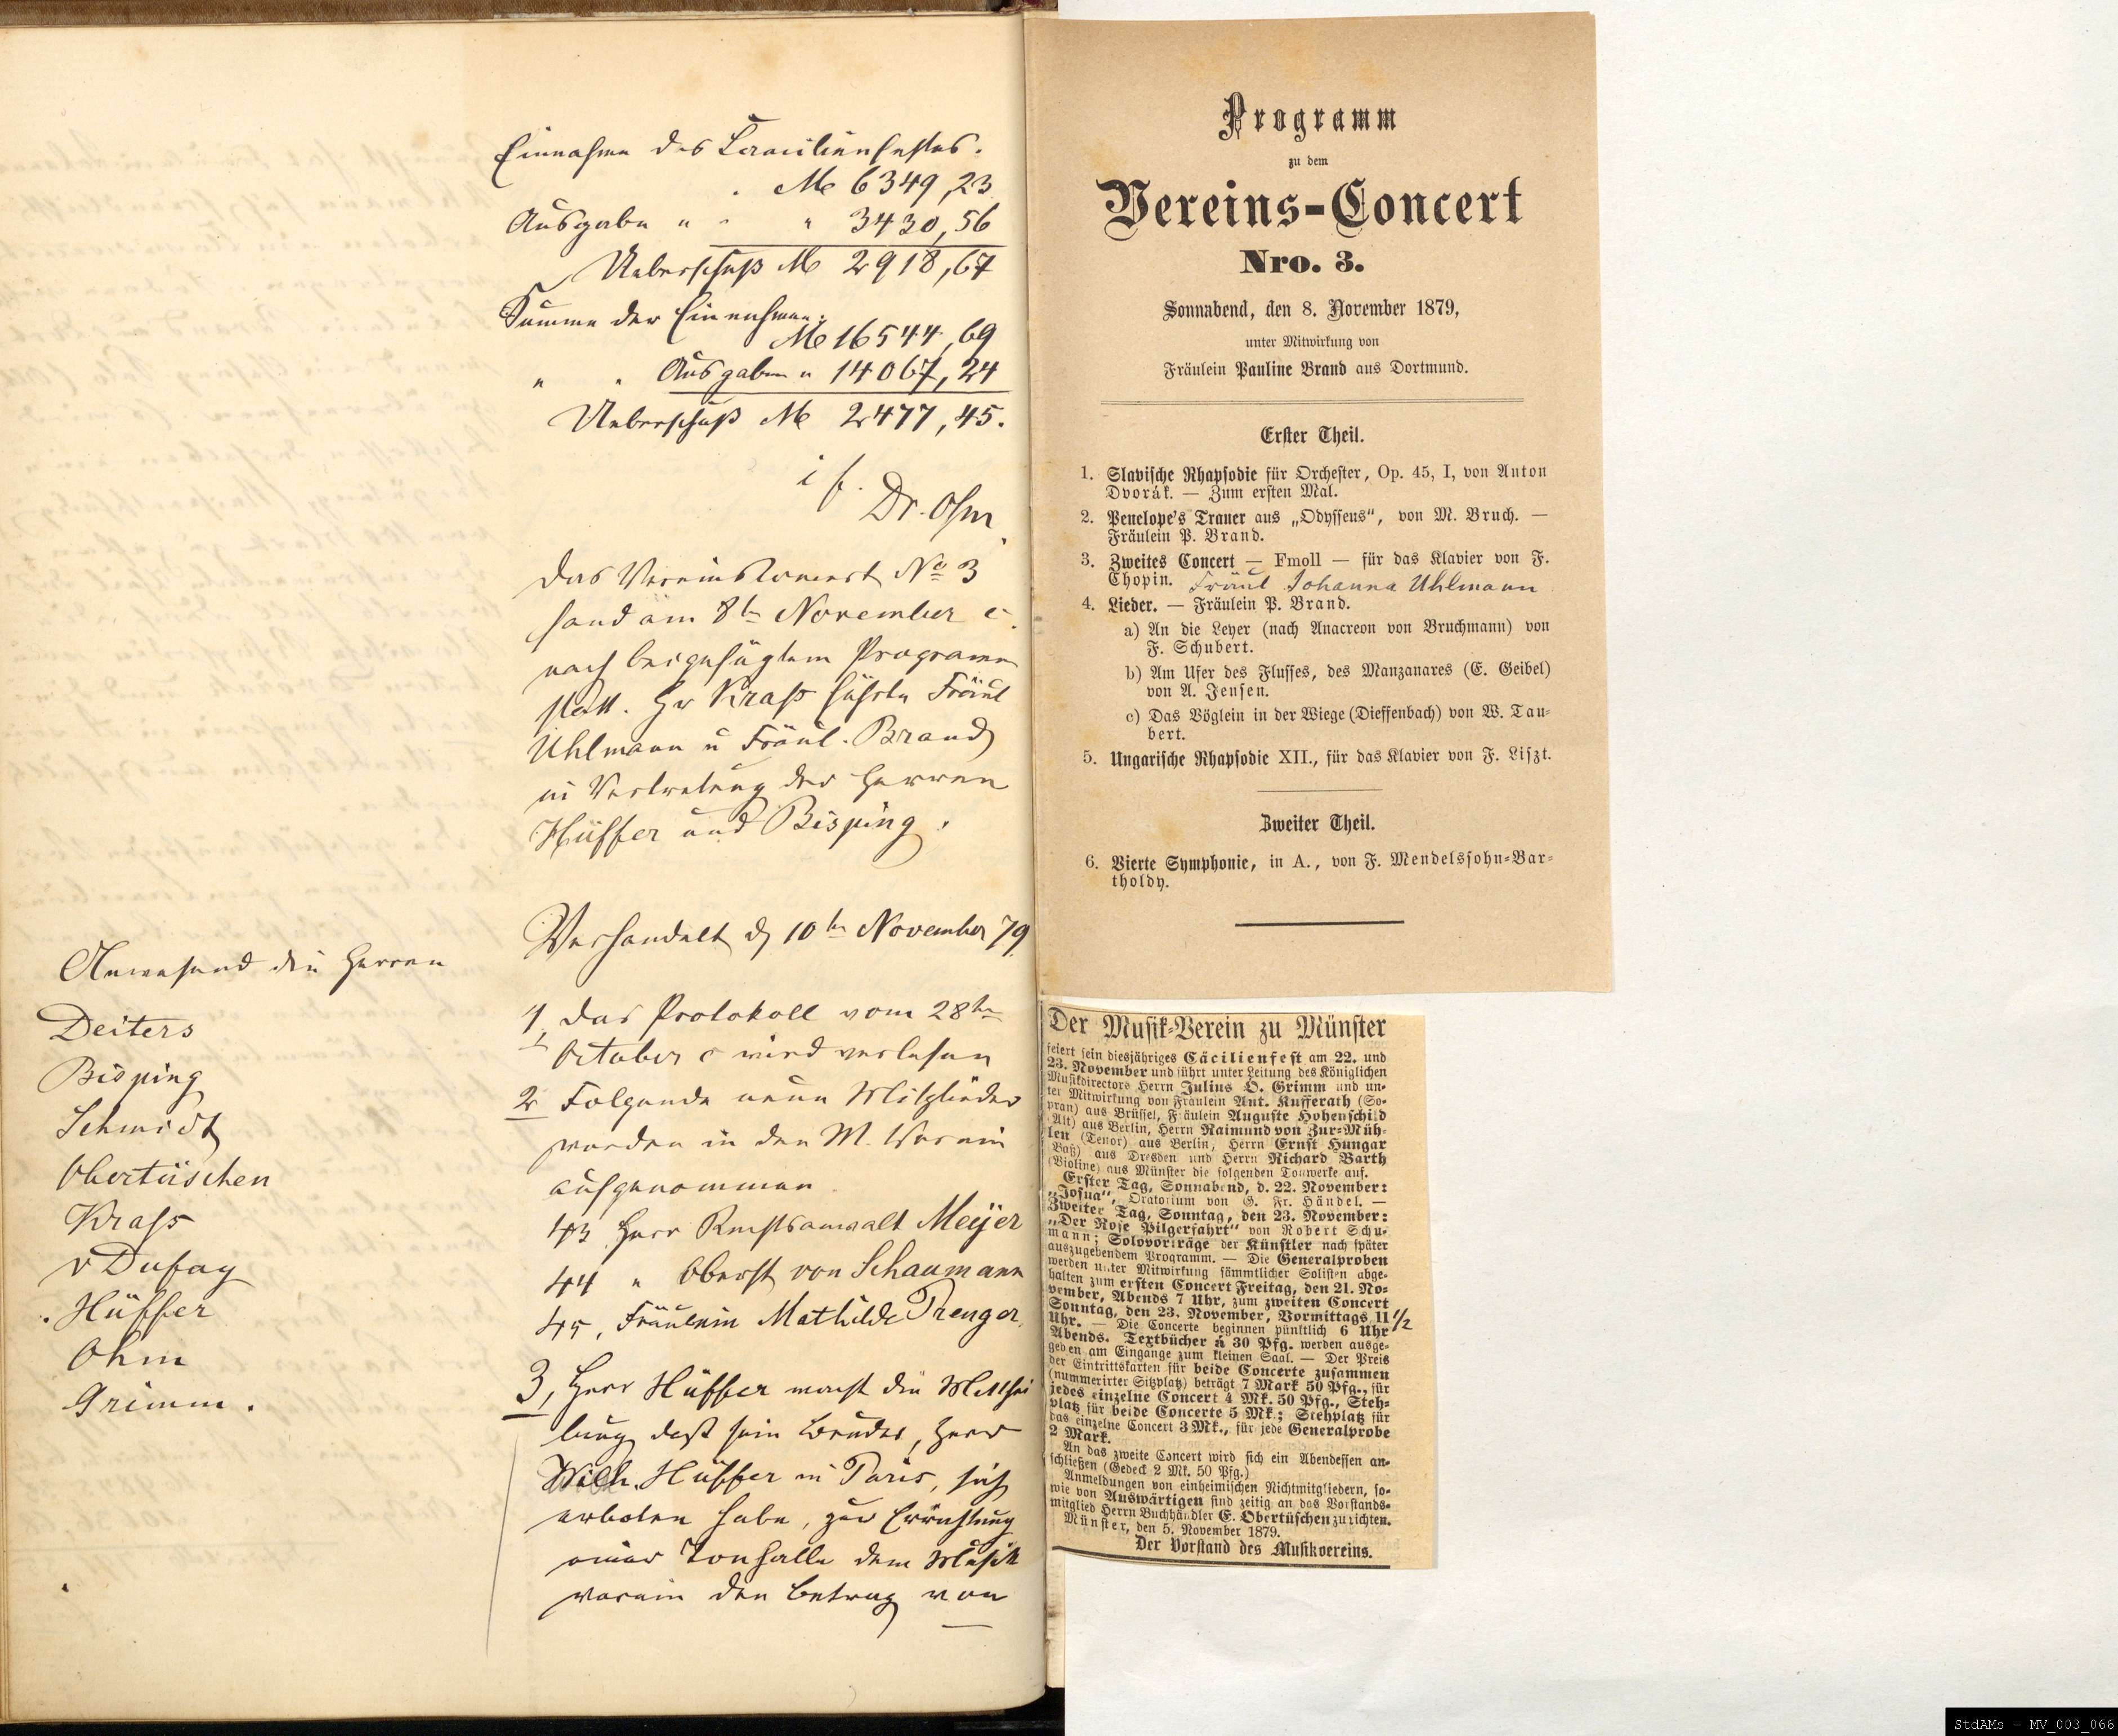 Einnahme des Caecilienfestes.
M 6349,23
Ausgabe " " " 3430,56
Ueberschuß M 2918,67
Summe der Einnahmen.
M 16544,69
" " Ausgaben " 14067,24
Ueberschuß M 2477,45.
Dr. Ohm
Das Vereinsconcert No 3
fand am 8ten November c.
nach beigefügtem Programm
statt. Hr Krass führte Fräul
Uhlmann u Fräul. Brand
in Vertretung der Herren
Hüffer und Bisping.
Verhandelt d 10ten November 79
Anwesend die Herren
Deiters
Bisping
Schmidt
Obertüschen
Krass
v Dufay
Hüffer
Ohm
Grimm.
1, Das Protokoll vom 28ten
October c wird verlesen
2 Folgende neue Mitglieder
werden in den M. Verein
aufgenommen
43 Herr Rechtsanwalt Meÿer
44 " Oberst von Schaumann
45, Fräulein Mathilde Prenger
3, Herr Hüffer macht die Mitthei
lung daß sein Bruder, Herr
Wilh. Hüffer in Paris, sich
erboten habe, zur Errichtung
einer Tonhalle dem Musik
verein den Betrag von
Programm
zu dem
Vereins-Concert
Nro. 3.
Sonnabend, den 8. November 1879,
unter Mitwirkung von
Fräulein Pauline Brand aus Dortmund.
Erster Theil.
1. Slavische Rhapsodie für Orchester, Op. 45, I, von Anton
Dvorák. — Zum ersten Mal.
2. Penelope's Trauer aus „Odysseus“, von M. Bruch. —
Fräulein P. Brand.
3. Zweites Concert — Fmoll — für das Klavier von F.
Chopin. Fräul Johanna Uhlmann
4. Lieder. — Fräulein P. Brand.
a) An die Leyer (nach Anacreon von Bruchmann) von
F. Schubert.
b) Am Ufer des Flusses, des Manzanares (E. Geibel)
von A. Jensen.
c) Das Vöglein in der Wiege (Dieffenbach) von W. Tau-
bert.
5. Ungarische Rhapsodie XII., für das Klavier von F. Liszt.
Zweiter Theil.
6. Vierte Symphonie, in A., von F. Mendelssohn-Bar-
tholdy.
Der Musik-Verein zu Münster
feiert sein diesjähriges Cäcilienfest am 22. und
23. November und führt unter Leitung des Königlichen
Musikdirectors Herrn Julius O. Grimm und un-
ter Mitwirkung von Fräulein Ant. Kufferath (So-
pran) aus Brüssel, Fräulein Auguste Hohenschild
(Alt) aus Berlin, Herrn Raimund von Zur-Müh-
len (Tenor) aus Berlin, Herrn Ernst Hungar
(Baß) aus Dresden und Herrn Richard Barth
(Violine) aus Münster die folgenden Tonwerke auf.
Erster Tag, Sonnabend, d. 22. November:
„Josua“, Oratorium von G. Fr. Händel. —
Zweiter Tag, Sonntag, den 23. November:
„Der Rose Pilgerfahrt“ von Robert Schu-
mann; Solovorträge der Künstler nach später
auszugebendem Programm. — Die Generalproben
werden unter Mitwirkung sämmtlicher Solisten abge-
halten zum ersten Concert Freitag, den 21. No-
vember, Abends 7 Uhr, zum zweiten Concert
Sonntag, den 23. November, Vormittags 11 1/2
Uhr. — Die Concerte beginnen pünktlich 6 Uhr
Abends. Textbücher à 30 Pfg. werden ausge-
geben am Eingange zum kleinen Saal. — Der Preis
der Eintrittskarten für beide Concerte zusammen
(nummerirter Sitzplatz) beträgt 7 Mark 50 Pfg., für
jedes einzelne Concert 4 Mk. 50 Pfg., Steh-
platz für beide Concerte 5 Mk.; Stehplatz für
das einzelne Concert 3 Mk., für jede Generalprobe
2 Mark.
An das zweite Concert wird sich ein Abendessen an-
schließen (Gedeck 2 Mk. 50 Pfg.)
Anmeldungen von einheimischen Nichtmitgliedern, so-
wie von Auswärtigen sind zeitig an das Vorstands-
mitglied Herrn Buchhändler E. Obertüschen zu richten.
Münster, den 5. November 1879.
Der Vorstand des Musikvereins.
StdAMs - MV_003_066